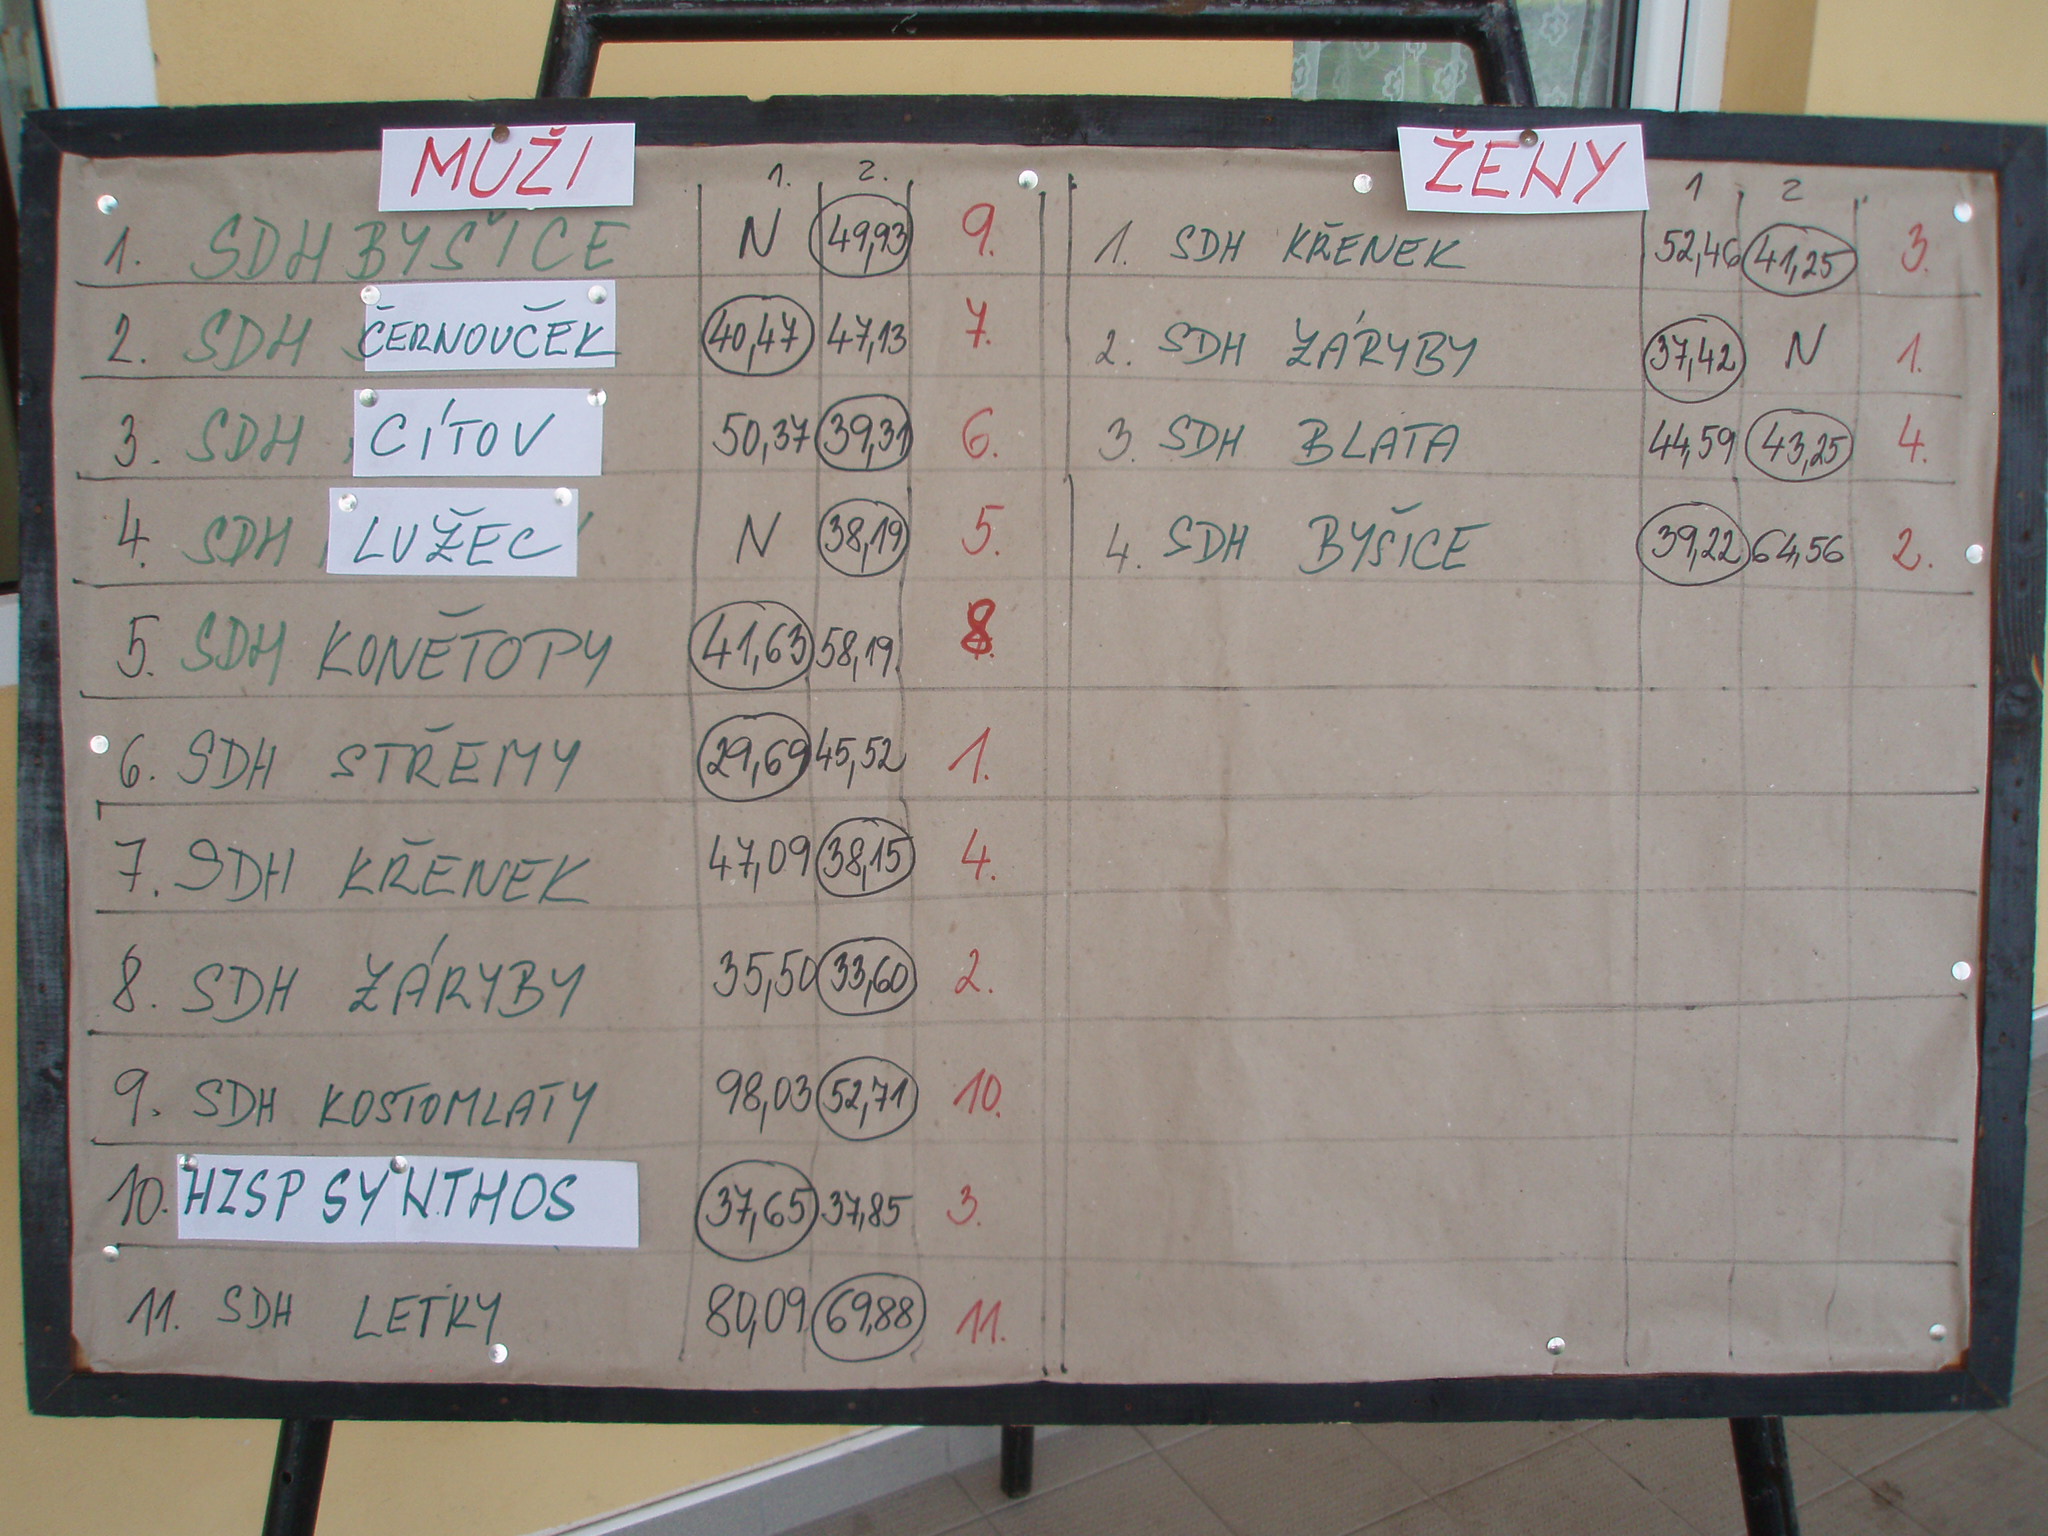 MUŽI
1. 2.
1. SDH BYŠICE N 49,93 9.
2. SDH ČERNOUČEK 40,47 47,13 7.
3. SDH CÍTOV 50,37 39,31 6.
4. SDH LUŽEC N 38,19 5.
5. SDH KONĚTOPY 41,63 58,19 8.
6. SDH STŘEMY 29,69 45,52 1.
7. SDH KŘENEK 47,09 38,15 4.
8. SDH ZÁRYBY 35,50 33,60 2.
9. SDH KOSTOMLATY 98,03 52,71 10.
10. HZSP SYNTHOS 37,65 37,85 3.
11. SDH LETKY 80,09 69,88 11.
ŽENY
1 2
1. SDH KŘENEK 52,46 41,25 3.
2. SDH ZÁRYBY 37,42 N 1.
3. SDH BLATA 44,59 43,25 4.
4. SDH BYŠICE 39,22 64,56 2.